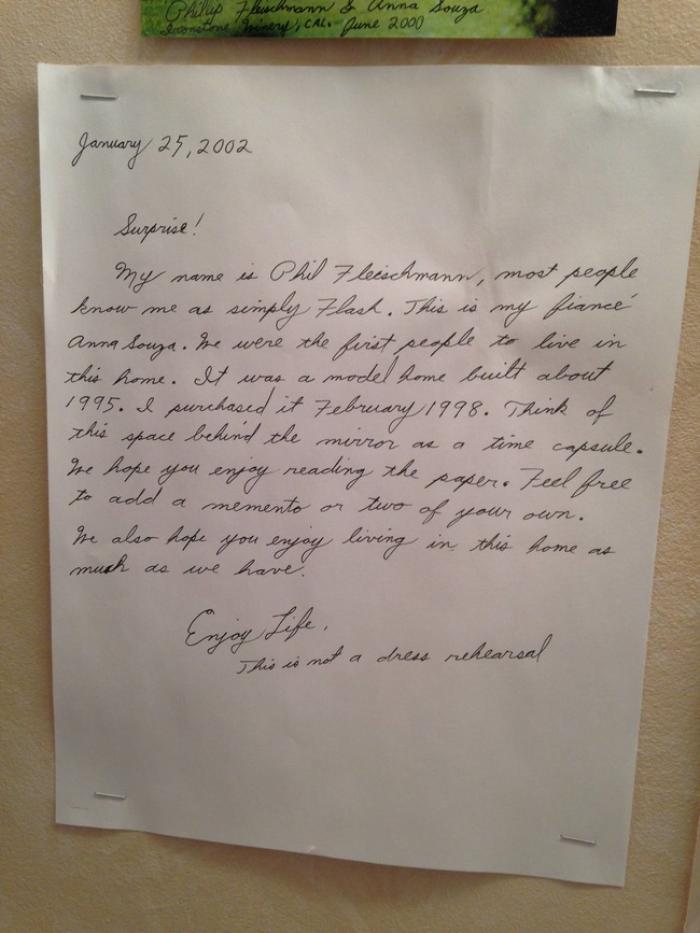 Philip Fleischmann & Anna Souza
Ironstone Winery, CAL. June 2000
January 25, 2002
Surprise!
My name is Phil Fleischmann, most people
know me as simply Flash. This is my fiancé
Anna Souza. We were the first people to live in
this home. It was a model home built about
1995. I purchased it February 1998. Think of
this space behind the mirror as a time capsule.
We hope you enjoy reading the paper. Feel free
to add a memento or two of your own.
We also hope you enjoy living in this home as
much as we have.
Enjoy Life,
This is not a dress rehearsal